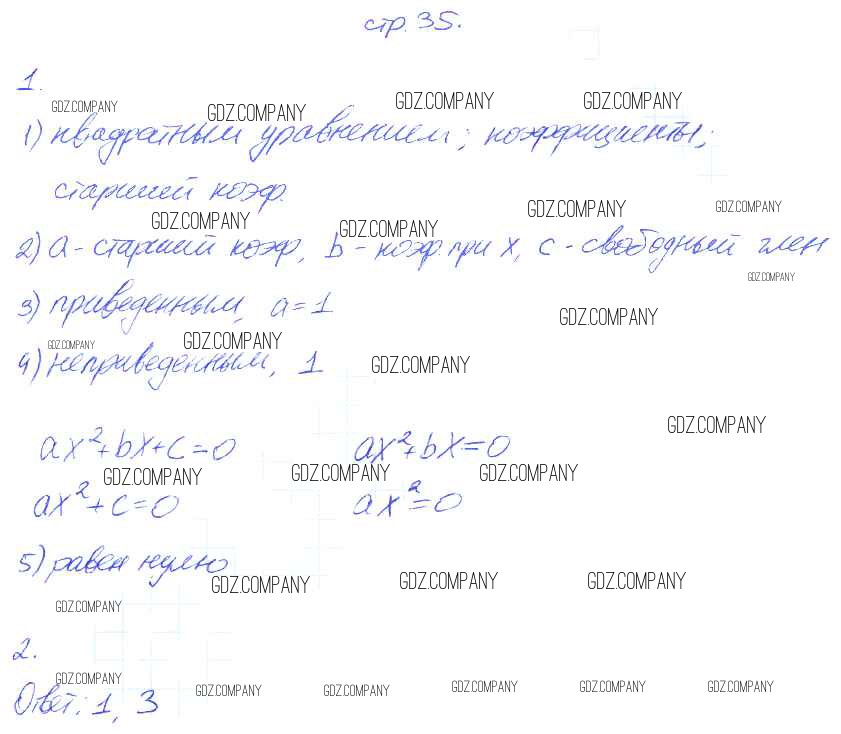 стр. 35.
1.
GDZ.COMPANY GDZ.COMPANY GDZ.COMPANY GDZ.COMPANY
1) квадратным уравнением; коэффициенты;
старший коэф.
GDZ.COMPANY GDZ.COMPANY GDZ.COMPANY GDZ.COMPANY
2) a - старший коэф, b - коэф. при x, c - свободный член
GDZ.COMPANY
3) приведенным, a = 1
GDZ.COMPANY
GDZ.COMPANY GDZ.COMPANY
4) неприведенным, 1
GDZ.COMPANY
GDZ.COMPANY
ax²+bx+c=0 ax²+bx=0
GDZ.COMPANY GDZ.COMPANY GDZ.COMPANY
ax²+c=0 ax²=0
5) равен нулю
GDZ.COMPANY GDZ.COMPANY GDZ.COMPANY
GDZ.COMPANY
2.
GDZ.COMPANY GDZ.COMPANY GDZ.COMPANY GDZ.COMPANY GDZ.COMPANY GDZ.COMPANY
Ответ: 1, 3